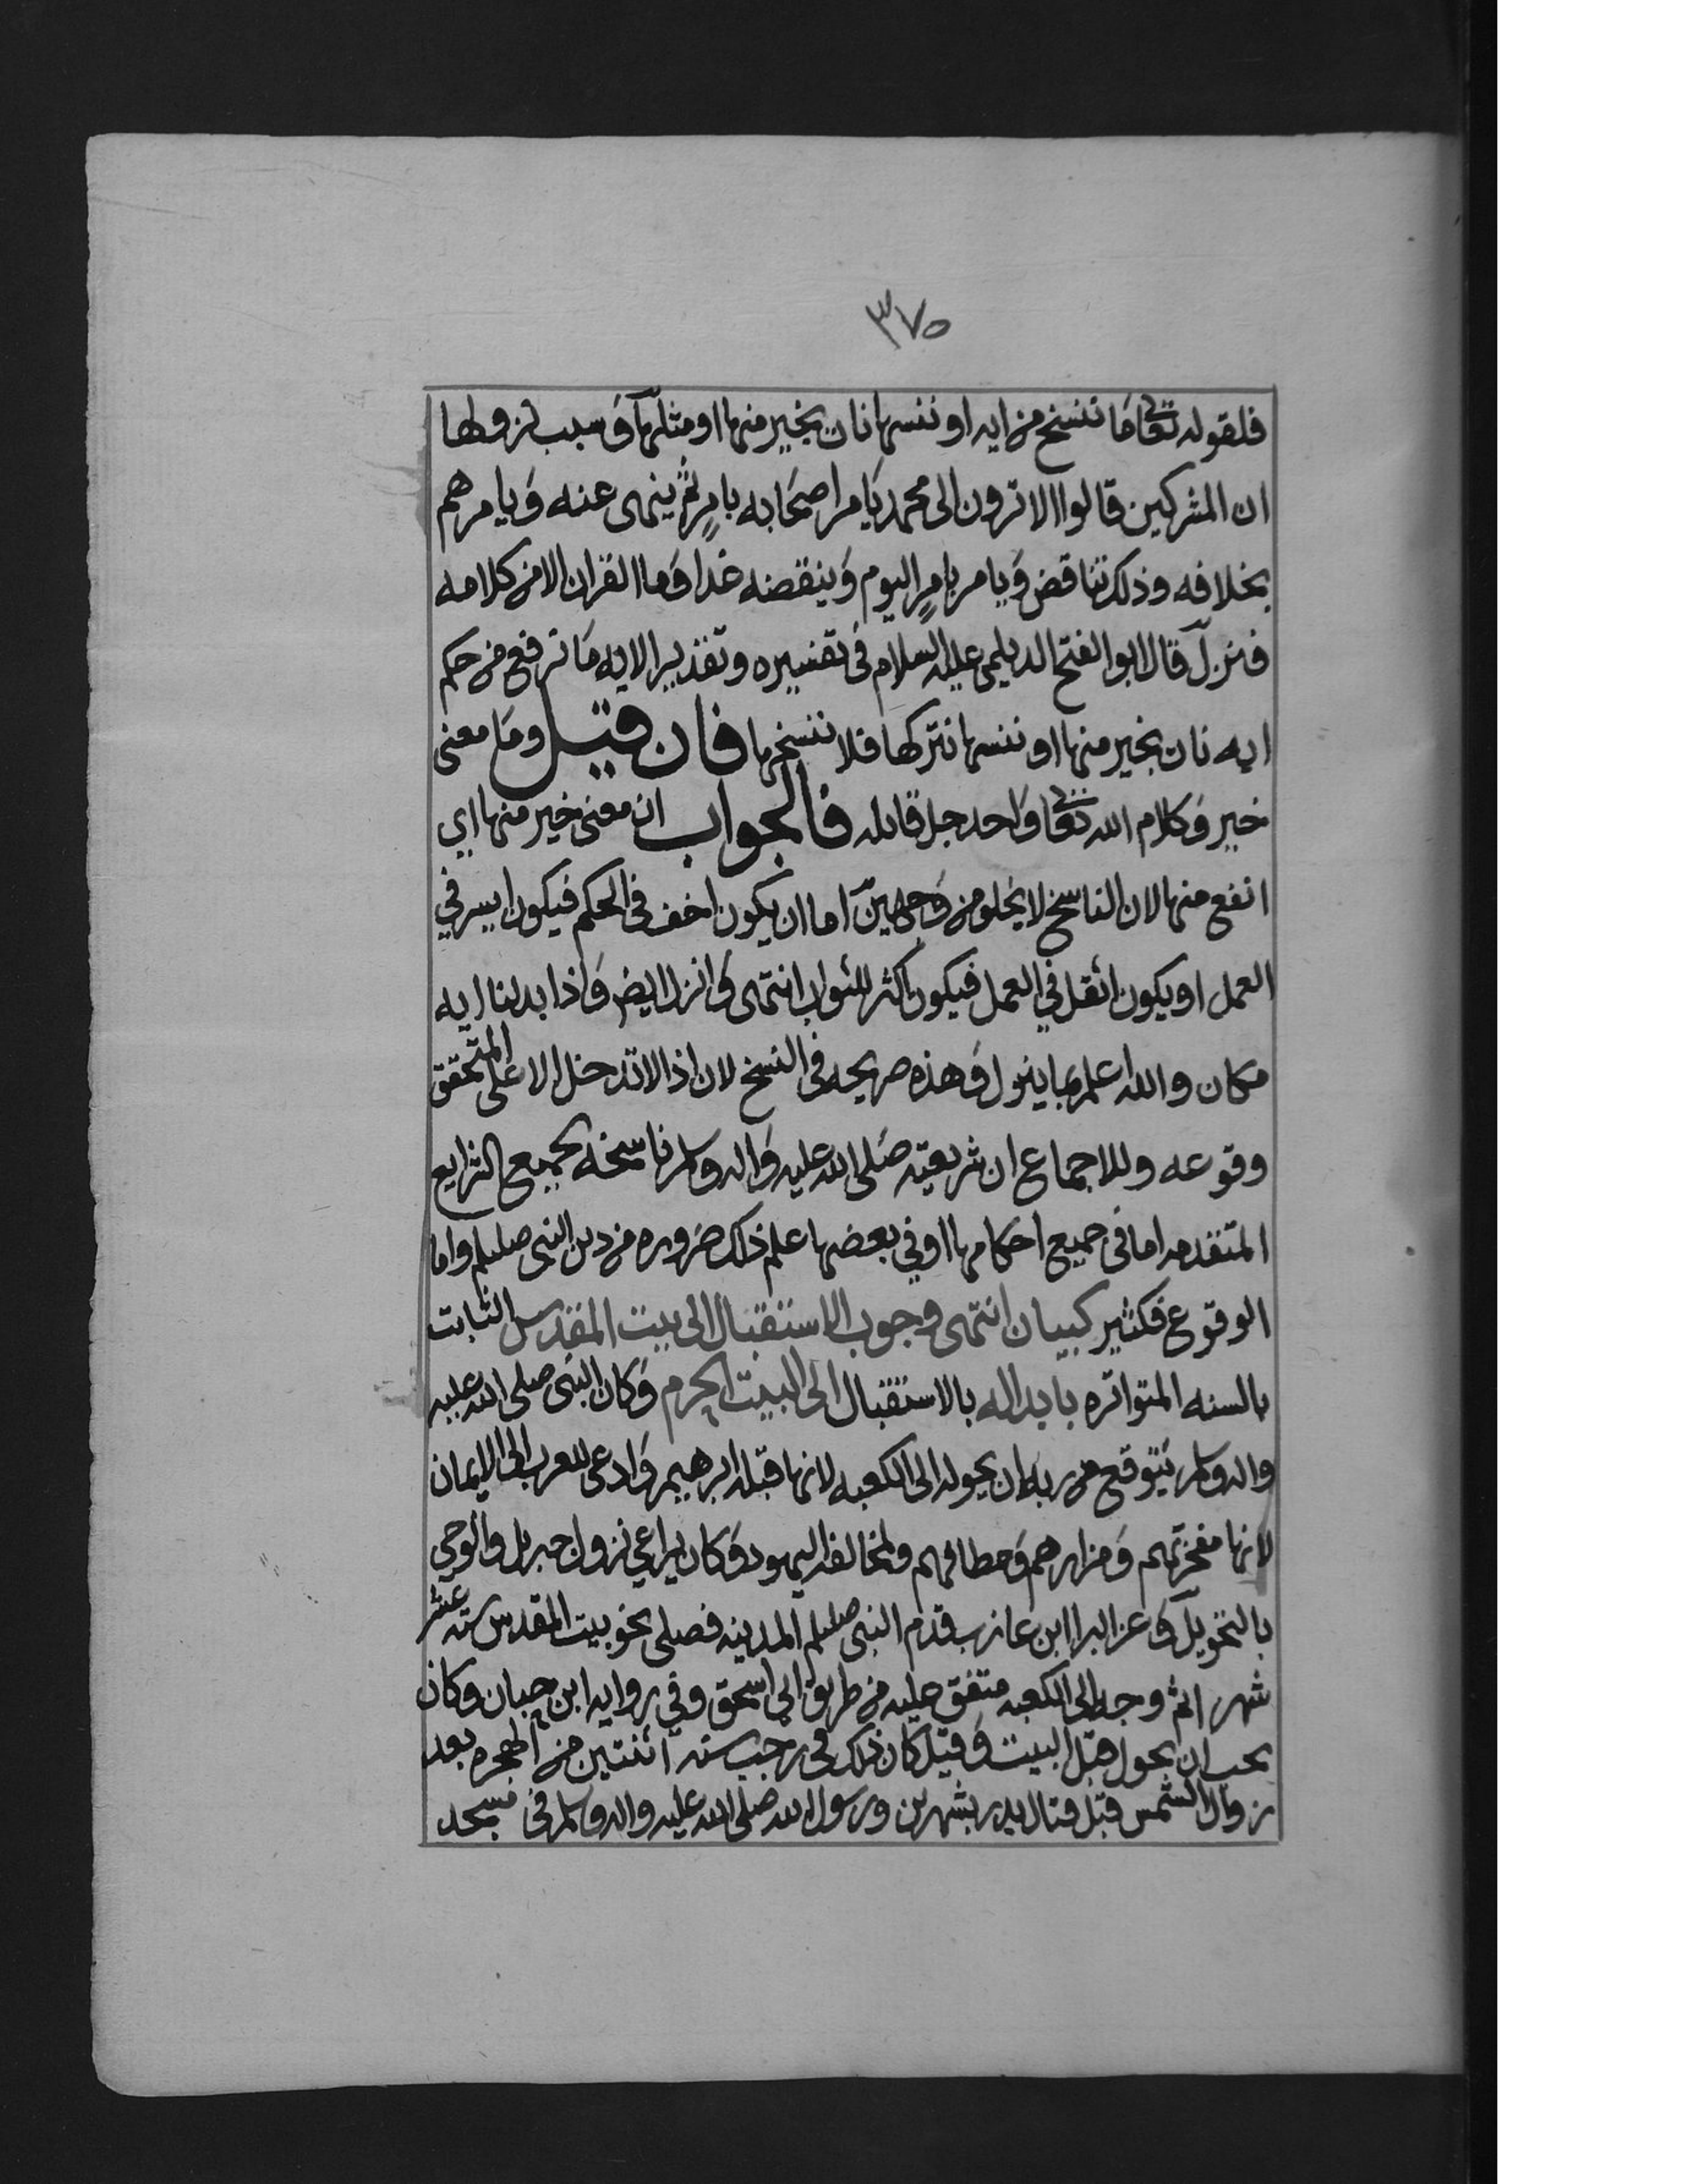 ٣٧٥
فلقوله تعالى ما ننسخ من ايه او ننسها نات بخير منها او مثلها وسبب نزولها
ان المشركين قالوا الا ترون الى محمد يامر اصحابه بامر ثم ينهى عنه ويامرهم
بخلافه وذلك تناقض ويامر بامر اليوم وينقضه غدا وما القران الا من كلامه
فنزل قال ابو الفتح الديلمي عليه السلام في تفسيره وتقدير الايه ما نرفع من حكم
ايه نات بخير منها او ننسها نتركها فلا ننسخها فان قيل وما معنى
خير وكلام الله تعالى واحد جل قايله فالجواب ان معنى خير منها اي
انفع منها لان الناسخ لا يخلو من وجهين اما ان يكون اخف في الحكم فيكون ايسر في
العمل او يكون اثقل في العمل فيكون اكثر للثواب انتهى وانزل ايض واذا بدلنا ايه
مكان والله اعلم بما ينزل وهذه صريحه في النسخ لان اذا لا تدخل الا على المتحقق
وقوعه وللاجماع ان شريعته صلى الله عليه واله وسلم ناسخه لجميع الشرايع
المتقدمه اما في جميع احكامها او في بعضها علم ذلك ضروره من دين النبي صللم واما
الوقوع فكثير كبيان انتهى وجوب الاستقبال الى بيت المقدس الثابت
بالسنه المتواتره بابداله بالاستقبال الى البيت المحرم وكان النبي صلى الله عليه
واله وسلم يتوقع من ربه ان يحوله الى الكعبه لانها قبله ابرهيم وادعى للعرب الى الايمان
لانها مفخرتهم ومزارهم ومطافهم ولمخالفه اليهود وكان يراعي نزول جبريل والوحي
بالتحويل وعن البرا ابن عازب قدم النبي صللم المدينه فصلى نحو بيت المقدس سته عشر
شهر اثم وجه الى الكعبه متفق عليه من طريق ابي اسحق وفي روايه ابن حبان وكان
يحب ان يحول قبل البيت وقيل كان ذلك في رجب سنه اثنتين من الهجره بعد
زوال الشمس قبل قتال بدر بشهرين ورسول الله صلى الله عليه واله وسلم في مسجد